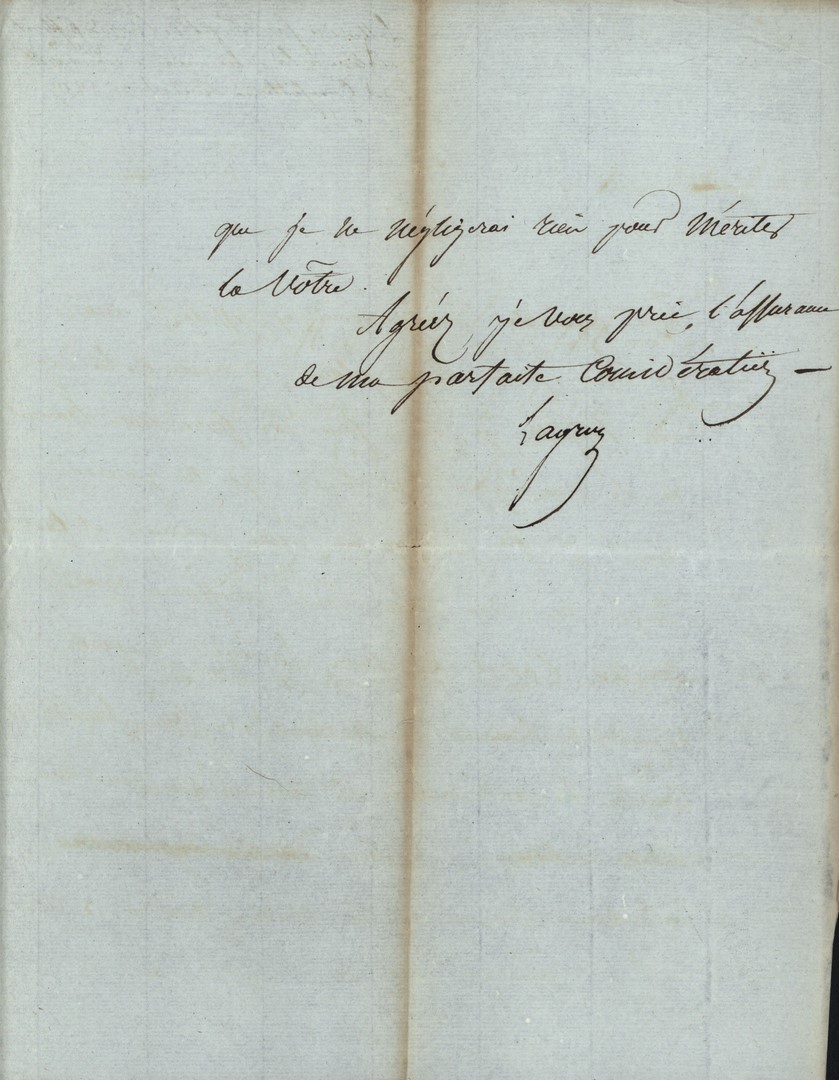 que je ne négligerai rien pour mériter
la Vôtre.
Agréez, je vous prie, l'assurance
de ma parfaite Considération —